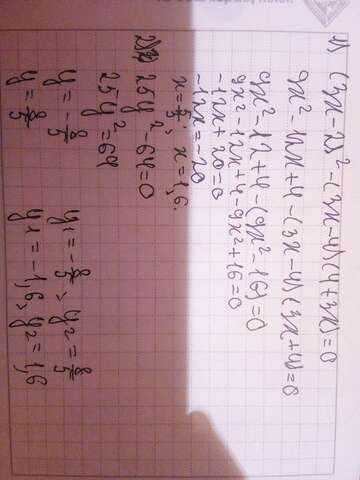 1) (3x-2)²-(3x-4)(4+3x)=0
9x²-12x+4-(3x-4)(3x+4)=0
9x²-12x+4-(9x²-16)=0
9x²-12x+4-9x²+16=0
-12x+20=0
-12x=-20
x=5/3; x=1,6.
2) 25y²-64=0
25y²=64
y=-8/5 y₁=-8/5; y₂=8/5
y=8/5 y₁=-1,6; y₂=1,6